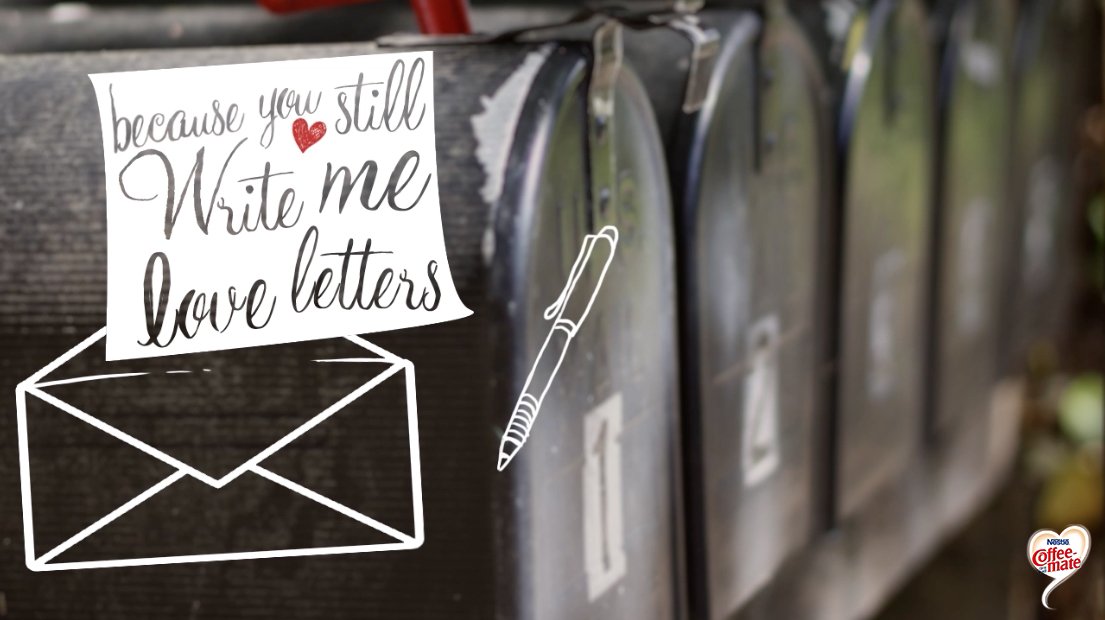 because you still
Write me
love letters
1
2
Nestlé
Coffee-
mate